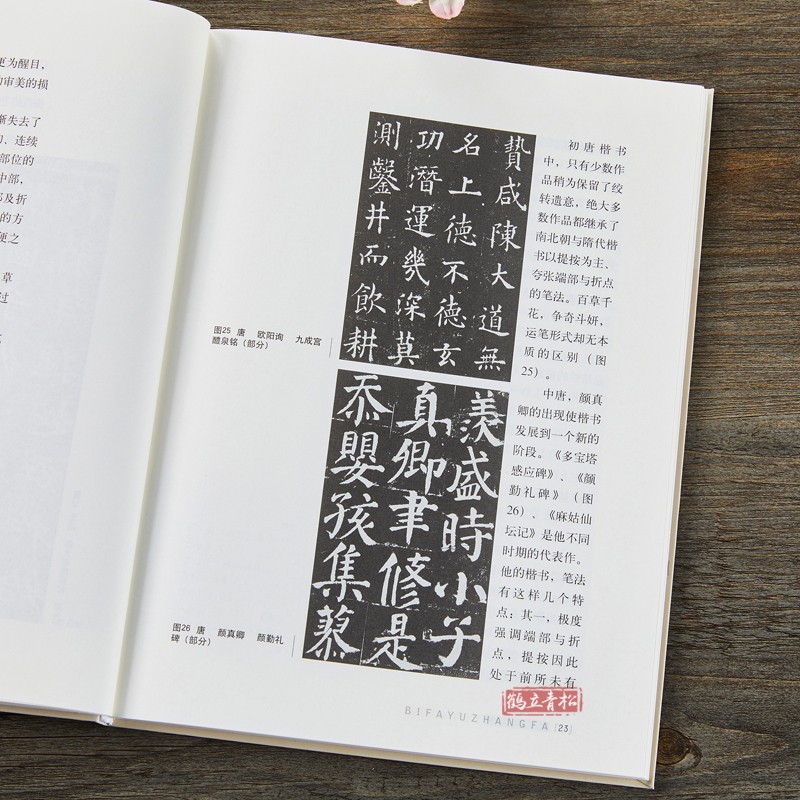 更为醒目，
的审美的损
渐失去了
、连续
部位的
中部，
及折
的方
便之
草
过
贄咸陳大道無
名上德不德玄
功潛運幾深莫
測鑿井而飲耕
图25 唐 欧阳询 九成宫
醴泉铭（部分）
羨盛時小子
真卿聿修是
忝嬰孩集蓼
图26 唐 颜真卿 颜勤礼
碑（部分）
初唐楷书
中，只有少数作
品稍为保留了绞
转遗意，绝大多
数作品都继承了
南北朝与隋代楷
书以提按为主、
夸张端部与折点
的笔法。百草千
花，争奇斗妍，
运笔形式却无本
质的区别（图
25）。
中唐，颜真
卿的出现使楷书
发展到一个新的
阶段。《多宝塔
感应碑》、《颜
勤礼碑》（图
26）、《麻姑仙
坛记》是他不同
时期的代表作。
他的楷书，笔法
有这样几个特
点：其一，极度
强调端部与折
点，提按因此
处于前所未有
鹤立青松
BIFAYUZHANGFA 23